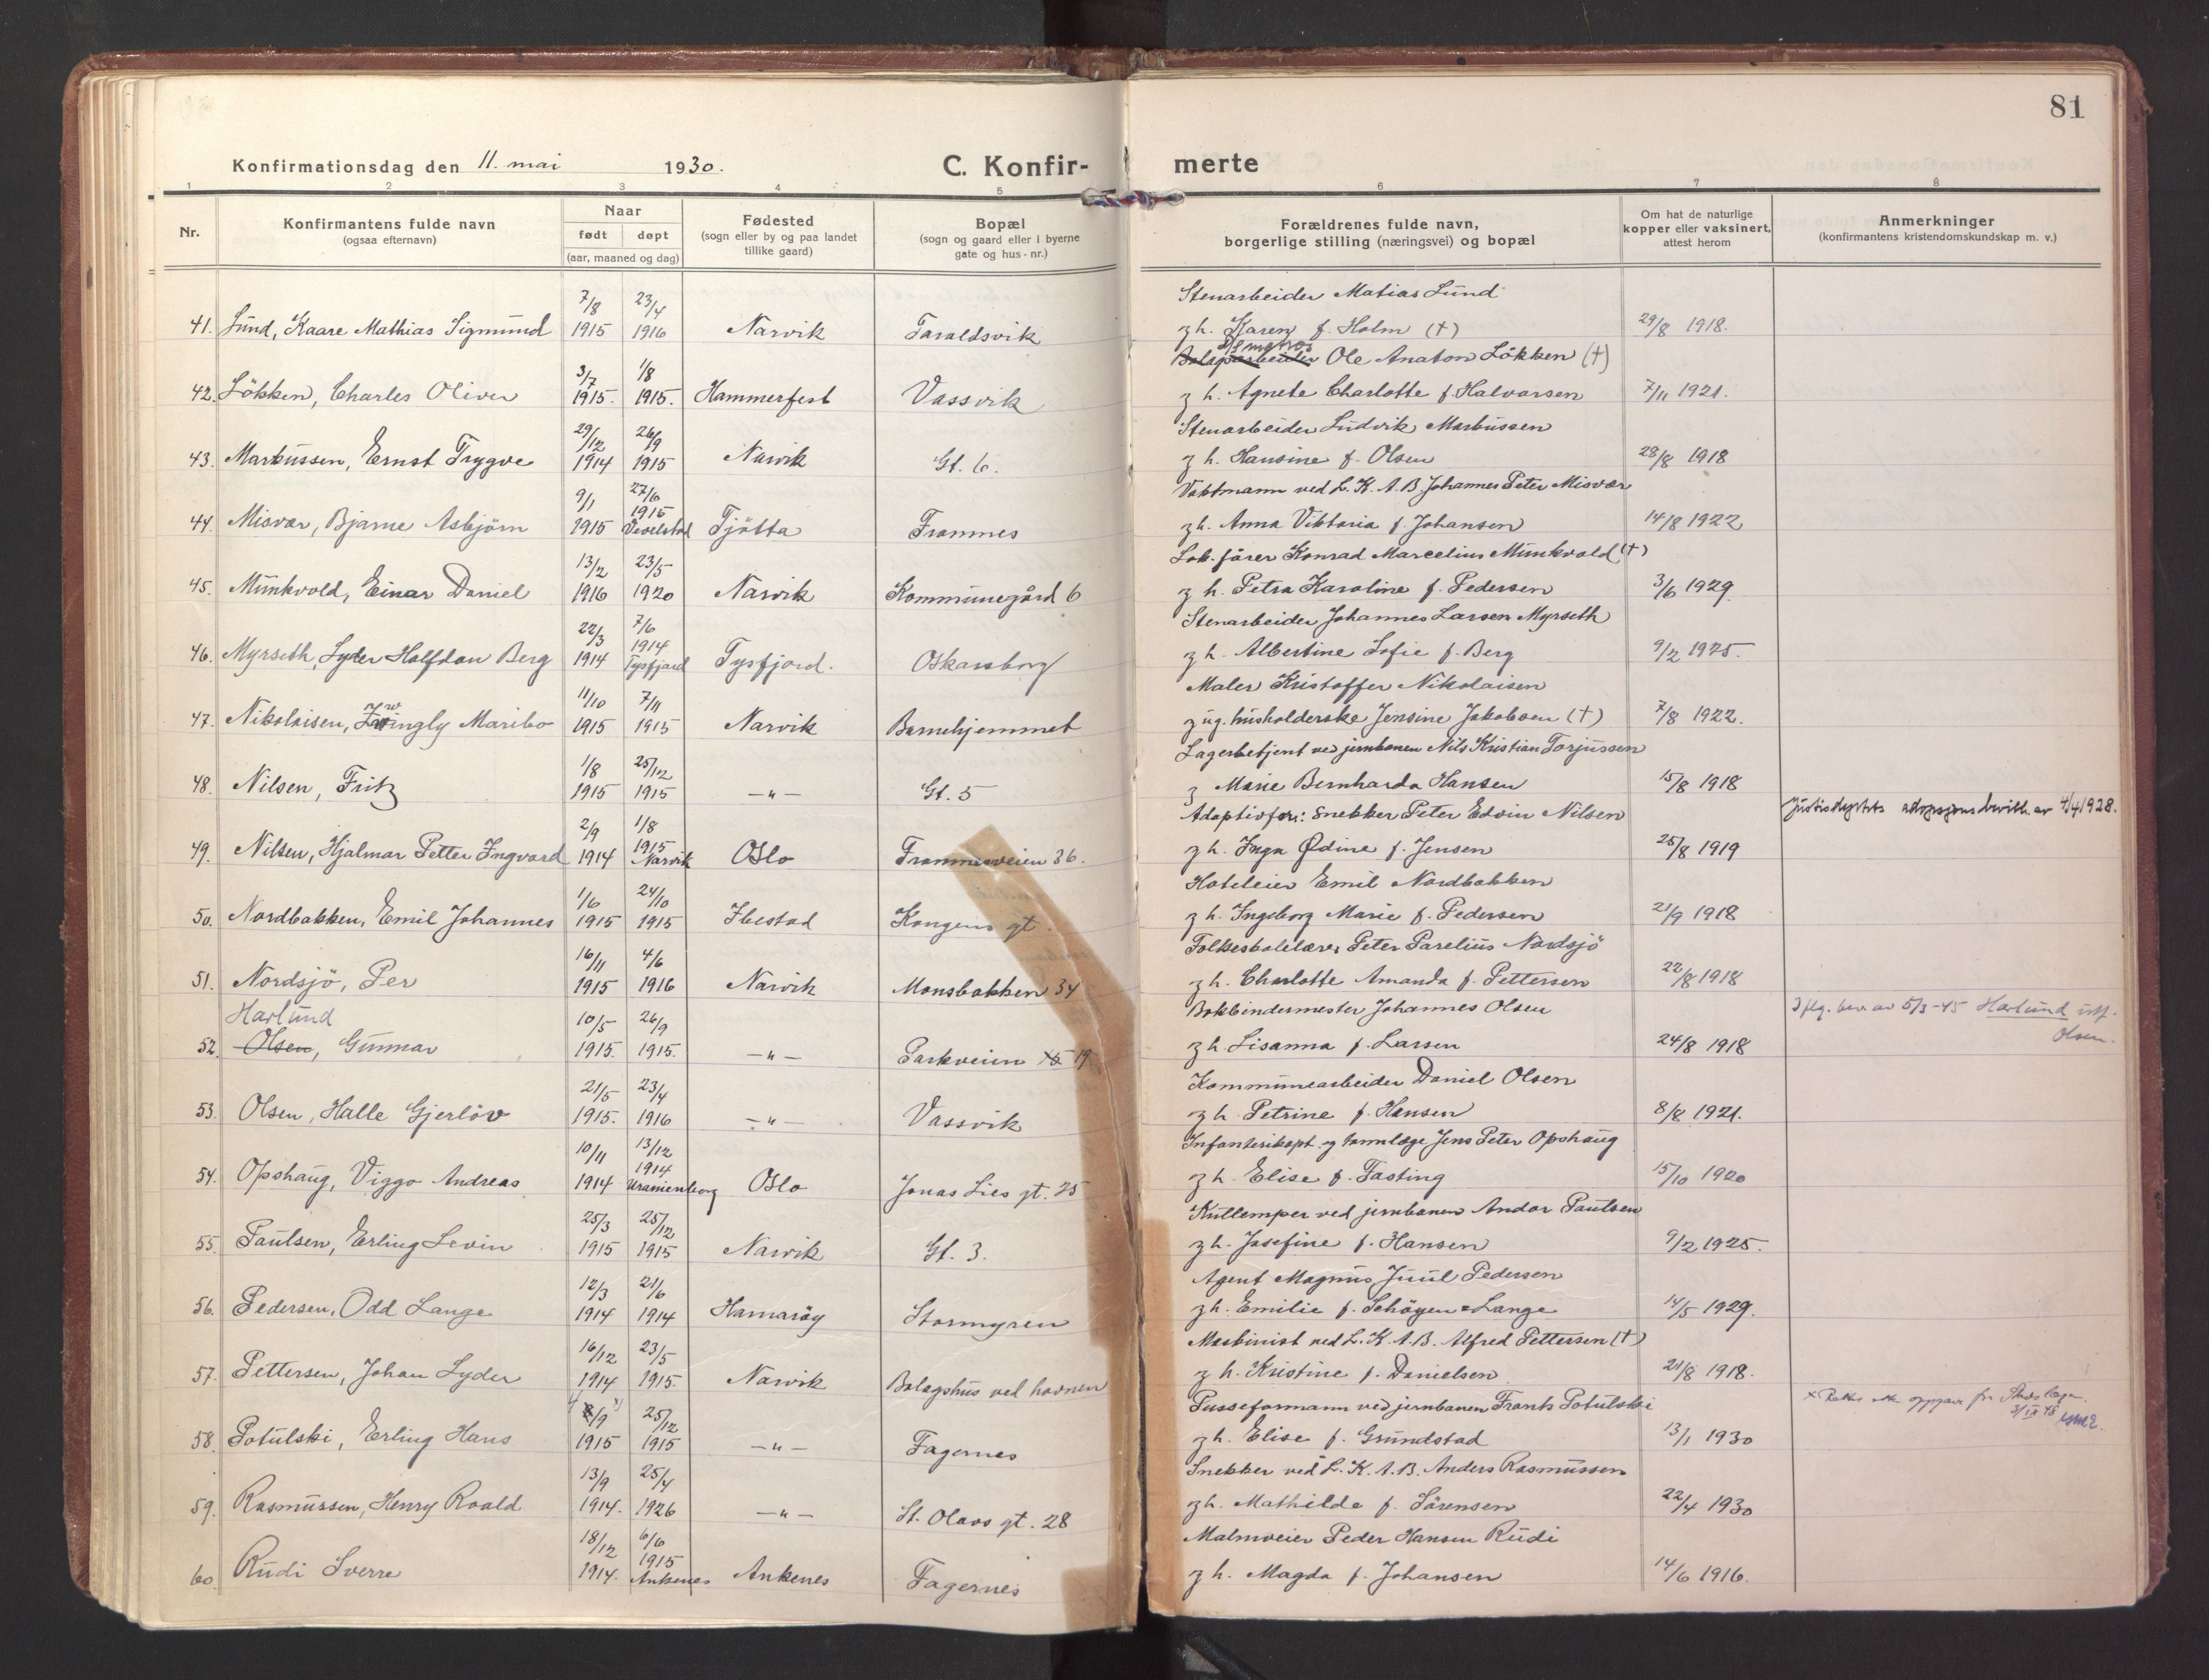 81
Konfirmationsdag den 11. mai 1930.
C. Konfir- merte
1 2 3 4 5 6 7 8
Nr.
Konfirmantens fulde navn
(ogsaa efternavn)
Naar
født døpt
(aar, maaned og dag)
Fødested
(sogn eller by og paa landet
tillike gaard)
Bopæl
(sogn og gaard eller i byerne
gate og hus-nr.)
Forældrenes fulde navn,
borgerlige stilling (næringsvei) og bopæl
Om hat de naturlige
kopper eller vaksinert,
attest herom
Anmerkninger
(konfirmantens kristendomskundskap m. v.)
7/8 23/4 Stenarbeider Matias Lund
41. Lund, Kaare Mathias Sigmund 1915 1916 Narvik Taraldsvik g h. Karen f. Holm (†) 29/8 1918.
3/7 1/8 Ole Anaton Lökken (†)
42. Lökken, Charles Oliver 1915. 1915. Hammerfest Vassvik g h. Agnete Charlotte f. Halvorsen 7/11 1921.
29/12 26/9 Stenarbeider Ludvik Markussen
43. Markussen, Ernst Trygve 1914 1915 Narvik Gt. 6. g h. Hansine f. Olsen 28/8 1918
9/1 27/6 1915 Vaktmann ved L. K. A. B Johannes Peter Misvær
44. Misvær, Bjarne Asbjörn 1915 Vevelstad Tjötta Framnes g h. Anna Viktoria f. Johansen 14/8 1922
13/2 23/5 Lok. förer Konrad Marcelius Munkvold (†)
45. Munkvold, Einar Daniel 1916 1920 Narvik Kommunegård 6 g h. Petra Karoline f. Pedersen 3/6 1929.
22/3 7/6 1914 Stenarbeider Johannes Larsen Myrseth
46. Myrseth, Lyder Halfdan Berg 1914 Tysfjord Tysfjord. Oskarsborg g h. Albertine Sofie f. Berg 9/2 1925.
11/10 7/11 Maler Kristoffer Nikolaisen
47. Nikolaisen, Zwingly Maribo 1915 1915 Narvik Barnehjemmet g ug. husholderske Jensine Jakobsen (†) 7/8 1922.
1/8 25/12 Lagerbetjent ved jernbanen Nils Kristian Torjussen
48. Nilsen, Fritz 1915 1915 —"— Gt. 5 g Marie Bernharda Hansen 15/8 1918
2/9 1/8 1915 Adoptivfor.: Snekker Peter Edvin Nilsen Justisdeptets adopsjonsbevill. av 4/4 1928.
49. Nilsen, Hjalmar Petter Ingvard 1914 Narvik Oslo Framnesveien 36. g h. Inga Ødine f. Jensen 25/8 1919
1/6 24/10 Hoteleier Emil Nordbakken
50. Nordbakken, Emil Johannes 1915 1915 Ibestad Kongens gt. g h. Ingeborg Marie f. Pedersen 21/9 1918
16/11 4/6 Folkeskolelærer Peter Parelius Nordsjö
51. Nordsjö, Per 1915 1916 Narvik Monsbakken 34 g h. Charlotte Amanda f. Pettersen 22/8 1918
Harlund 10/5 26/9 Bokbindermester Johannes Olsen Iflg. bev. av 5/3-45 Harlund istf. Olsen.
52. Olsen, Gunnar 1915. 1915. —"— Parkveien 19 g h Lisanna f. Larsen 24/8 1918
21/5 23/4 Kommunearbeider Daniel Olsen
53. Olsen, Halle Gjerlöv 1915. 1916 —"— Vassvik g h. Petrine f. Hansen 8/8 1921.
10/11 13/12 1914 Infanterikapt. og tannlæge Jens Peter Opshaug
54. Opshaug, Viggo Andreas 1914 Uranienborg Oslo Jonas Lies gt. 25 g h. Elise f. Fasting 15/10 1920
25/3 25/12 Kullemper ved jernbanen Andor Paulsen
55. Paulsen, Erling Levin 1915 1915 Narvik Gt. 3. g h. Josefine f. Hansen 9/2 1925.
12/3 21/6 Agent Magnus Juul Pedersen
56. Pedersen, Odd Lange 1914 1914 Hamaröy Stormyren g h. Emilie f. Schöyen=Lange 14/5 1929.
16/12 23/5 Maskinist ved L. K. A. B. Alfred Pettersen (†)
57. Pettersen, Johan Lyder 1914 1915. Narvik Bolagshus ved havnen g h. Kristine f. Danielsen 21/8 1918.
4 8/9 x) 25/12 Pusseformann ved jernbanen Frank Potulski
58. Potulski, Erling Hans 1915 1915 —"— Fagernes g h. Elise f. Grundstad 13/1 1930
13/9 25/4 Snekker ved L. K. A. B. Anders Rasmussen
59. Rasmussen, Henry Roald 1914. 1926 —"— St. Olavs gt. 28 g h. Mathilde f. Sörensen 22/4 1930
18/12 6/6 1915 Malmveier Peder Hansen Rudi
60. Rudi Sverre 1914. Ankenes Ankenes Fagernes g h. Magda f. Johansen 14/6 1916.